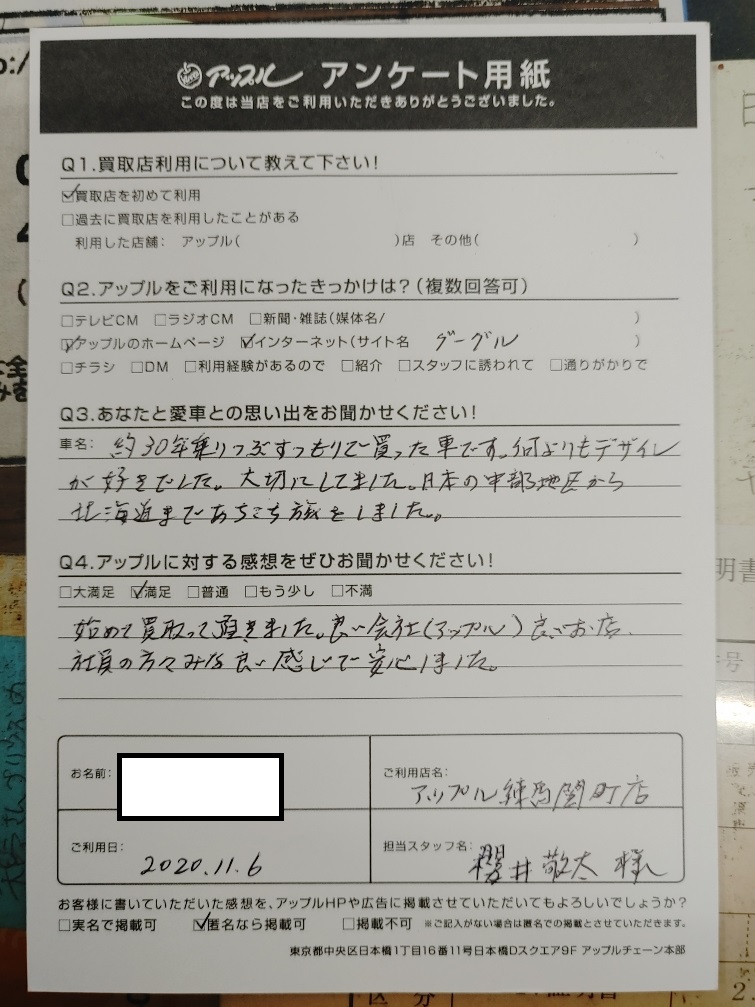 アップル アンケート用紙
この度は当店をご利用いただきありがとうございました。
Q1.買取店利用について教えて下さい!
☑買取店を初めて利用
□過去に買取店を利用したことがある
利用した店舗: アップル( )店 その他( )
Q2.アップルをご利用になったきっかけは?(複数回答可)
□テレビCM □ラジオCM □新聞・雑誌(媒体名/ )
☑アップルのホームページ ☑インターネット(サイト名 グーグル )
□チラシ □DM □利用経験があるので □紹介 □スタッフに誘われて □通りがかりで
Q3.あなたと愛車との思い出をお聞かせください!
車名: 約30年乗りつぶすつもりで買った車です。何よりもデザイン
が好きでした。大切にしてました。日本の中部地区から
北海道まであちこち旅をしました。
Q4.アップルに対する感想をぜひお聞かせください!
□大満足 ☑満足 □普通 □もう少し □不満
始めて買取って頂きました。良い会社(アップル)良いお店、
社員の方々みな良い感じで安心しました。
お名前:
ご利用店名:
アップル練馬関町店
ご利用日:
2020.11.6
担当スタッフ名:
櫻井敬太 様
お客様に書いていただいた感想を、アップルHPや広告に掲載させていただいてもよろしいでしょうか?
□実名で掲載可 ☑匿名なら掲載可 □掲載不可 ※ご記入がない場合は匿名での掲載とさせていただきます。
東京都中央区日本橋1丁目16番11号日本橋Dスクエア9F アップルチェーン本部